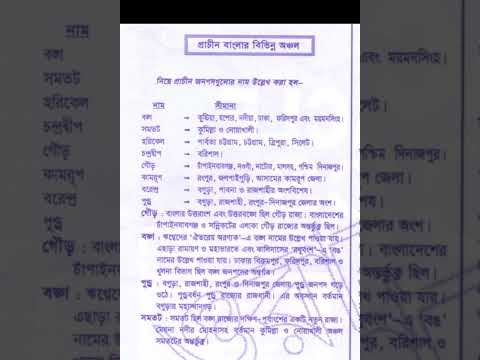 প্রাচীন বাংলার বিভিন্ন অঞ্চল
নিম্নে প্রাচীন জনপদগুলোর নাম উল্লেখ করা হল–
নাম সীমানা
বঙ্গ → কুষ্টিয়া, যশোর, নদীয়া, ঢাকা, ফরিদপুর এবং ময়মনসিংহ।
সমতট → কুমিল্লা ও নোয়াখালী।
হরিকেল → পার্বত্য চট্টগ্রাম, চট্টগ্রাম, ত্রিপুরা, সিলেট।
চন্দ্রদ্বীপ → বরিশাল।
গৌড় → চাঁপাইনবাবগঞ্জ, নওগাঁ, নাটোর, মালদহ, পশ্চিম দিনাজপুর।
কামরূপ → রংপুর, জলপাইগুড়ি, আসামের কামরূপ জেলা।
বরেন্দ্র → বগুড়া, পাবনা ও রাজশাহীর অংশবিশেষ।
পুণ্ড্র → বগুড়া, রাজশাহী, রংপুর-দিনাজপুর জেলার অংশ।
গৌড় : বাংলার উত্তরাংশ এবং উত্তরবঙ্গে ছিল গৌড় রাজ্য। বাংলাদেশের
চাঁপাইনবাবগঞ্জ ও সন্নিকটের এলাকা গৌড় রাজ্যের অন্তর্ভুক্ত ছিল।
বঙ্গ : ঋগ্বেদের 'ঐতরেয় আরণ্যক'-এ বঙ্গ নামের উল্লেখ পাওয়া যায়।
এছাড়া রামায়ণ ও মহাভারতে এবং কালিদাসের 'রঘুবংশ'-এ 'বঙ্গ'
নামের উল্লেখ পাওয়া যায়। ঢাকার বিক্রমপুর, ফরিদপুর, বরিশাল ও
খুলনা বিভাগ ছিল বঙ্গ জনপদের অন্তর্গত।
পুণ্ড্র : বগুড়া, রাজশাহী, রংপুর ও দিনাজপুর জেলায় পুণ্ড্র জনপদ গড়ে
ওঠে। পুণ্ড্রবর্ধন পুণ্ড্র রাজ্যের রাজধানী। এর অবস্থান বর্তমান
বগুড়ার মহাস্থানগড়।
সমতট : সমতট ছিল বঙ্গ রাজ্যের দক্ষিণ-পূর্বাংশের একটি নতুন রাজ্য।
মেঘনা নদীর মোহনাসহ বর্তমান কুমিল্লা ও নোয়াখালী অঞ্চল
সমতটের অন্তর্ভুক্ত।
নাম
বঙ্গ
সমতট
হরিকেল
চন্দ্রদ্বীপ
গৌড়
কামরূপ
বরেন্দ্র
পুণ্ড্র
গৌড় :
বঙ্গ : ঋগ্বে
এছাড়া
নামের
খুলনা
এবং ময়মনসিংহ।
সিলেট।
পশ্চিম দিনাজপুর।
জেলা।
বাংলাদেশের
অন্তর্ভুক্ত ছিল।
পাওয়া যায়।
'বঙ্গ'
বরিশাল ও